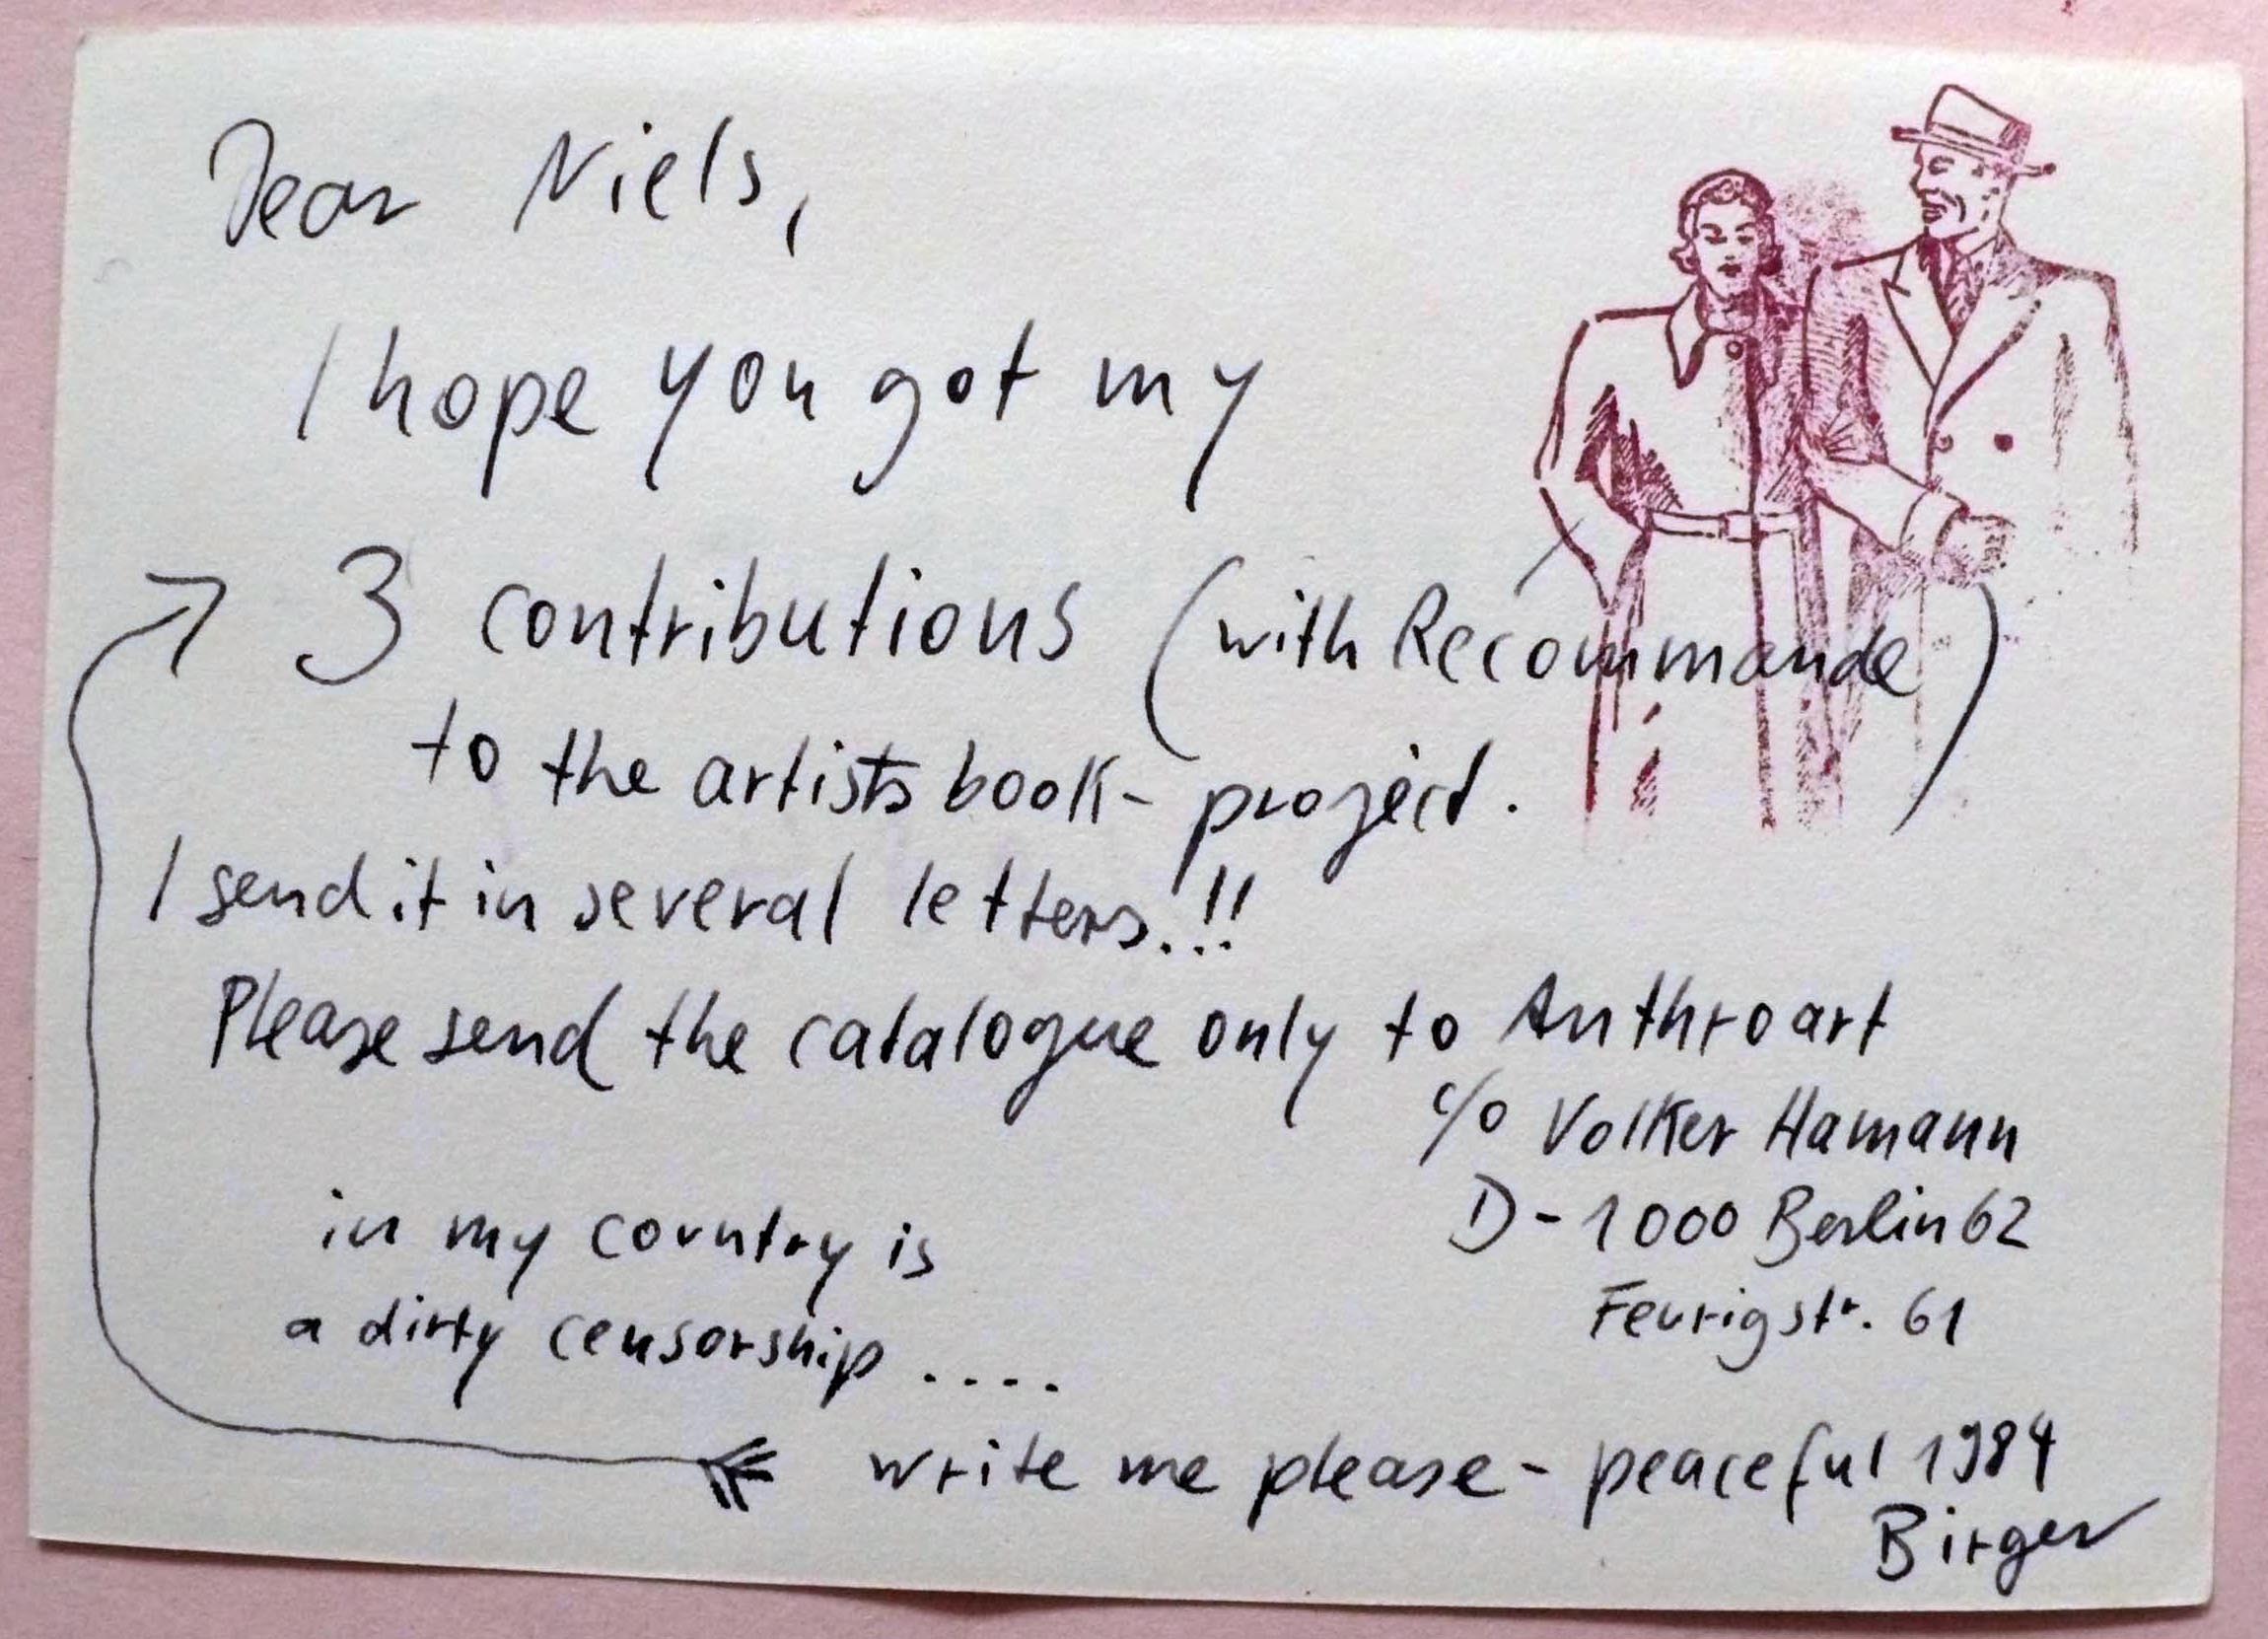 Dear Niels,
I hope you got my
3 contributions (with Recommande)
to the artists book-project.
I send it in several letters.!!!
Please send the catalogue only to Anthroart
c/o Volker Hamann
D-1000 Berlin 62
Feurigstr. 61
in my country is
a dirty censorship ....
write me please - peaceful 1984
Birger